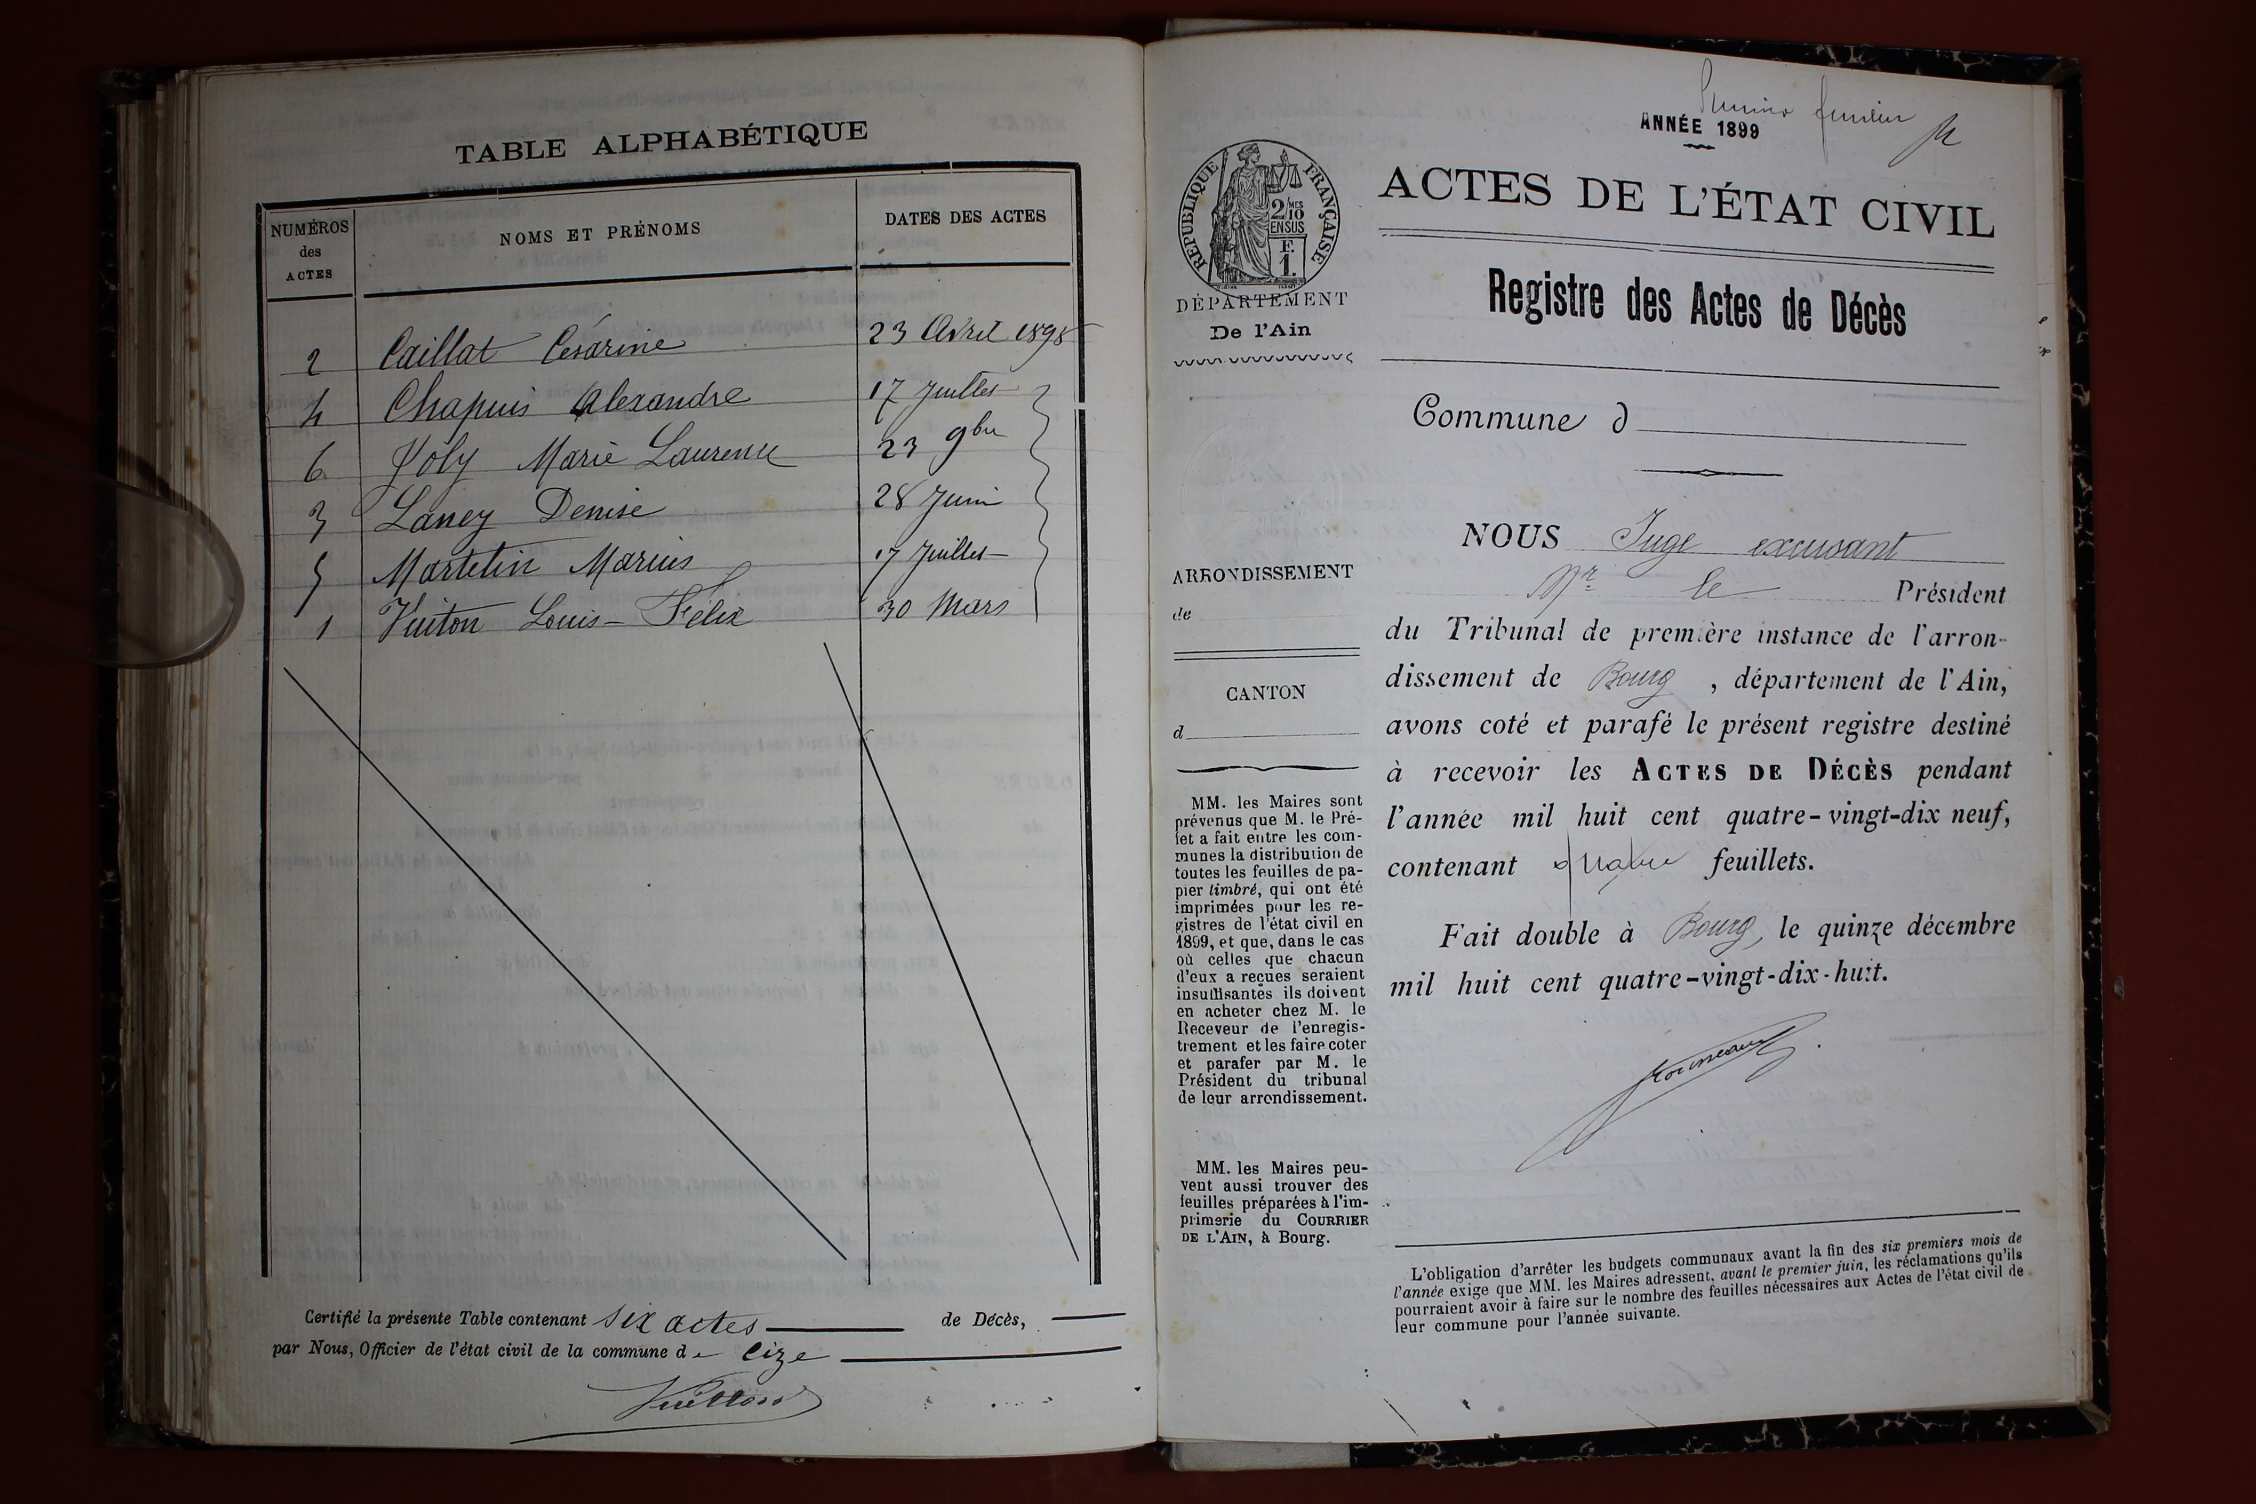 TABLE ALPHABÉTIQUE
NUMÉROS
des
ACTES
NOMS ET PRÉNOMS
DATES DES ACTES
2 Caillat Césarine 23 Avril 1898
4 Chapuis Alexandre 17 Juillet
6 Joly Marie Laurence 23 9bre
3 Laney Denise 28 Juin
5 Martelin Marius 17 Juillet
1 Vuiton Louis-Félix 30 Mars
Certifié la présente Table contenant six actes de Décès,
par Nous, Officier de l'état civil de la commune de Cize
Premier feuillet
ANNÉE 1899
ACTES DE L'ÉTAT CIVIL
RÉPUBLIQUE FRANÇAISE
2/10 MES
EN SUS
F.
1.
DÉPARTEMENT
De l'Ain
Registre des Actes de Décès
Commune d
NOUS Juge excusant
Mr le Président
du Tribunal de première instance de l'arron-
dissement de Bourg, département de l'Ain,
avons coté et parafé le présent registre destiné
à recevoir les ACTES DE DÉCÈS pendant
l'année mil huit cent quatre-vingt-dix neuf,
contenant quatre feuillets.
Fait double à Bourg, le quinze décembre
mil huit cent quatre-vingt-dix-huit.
ARRONDISSEMENT
de
CANTON
d
MM. les Maires sont
prévenus que M. le Pré-
fet a fait entre les com-
munes la distribution de
toutes les feuilles de pa-
pier timbré, qui ont été
imprimées pour les re-
gistres de l'état civil en
1899, et que, dans le cas
où celles que chacun
d'eux a reçues seraient
insuffisantes ils doivent
en acheter chez M. le
Receveur de l'enregis-
trement et les faire coter
et parafer par M. le
Président du tribunal
de leur arrondissement.
MM. les Maires peu-
vent aussi trouver des
feuilles préparées à l'im-
primerie du COURRIER
DE L'AIN, à Bourg.
L'obligation d'arrêter les budgets communaux avant la fin des six premiers mois de
l'année exige que MM. les Maires adressent, avant le premier juin, les réclamations qu'ils
pourraient avoir à faire sur le nombre des feuilles nécessaires aux Actes de l'état civil de
leur commune pour l'année suivante.